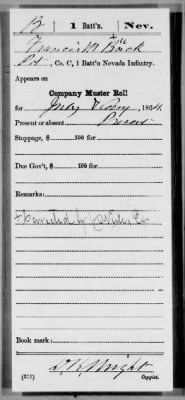 B | 1 Batt'n. | Nev.
Francis M Buck
Pvt, Co. C, 1 Batt'n Nevada Infantry.
Appears on
Company Muster Roll
for July & Aug, 1864.
Present or absent Present
Stoppage, $ 100 for
Due Gov't, $ 100 for
Remarks:
Book mark:
D. H. Wright
(858) Copyist.